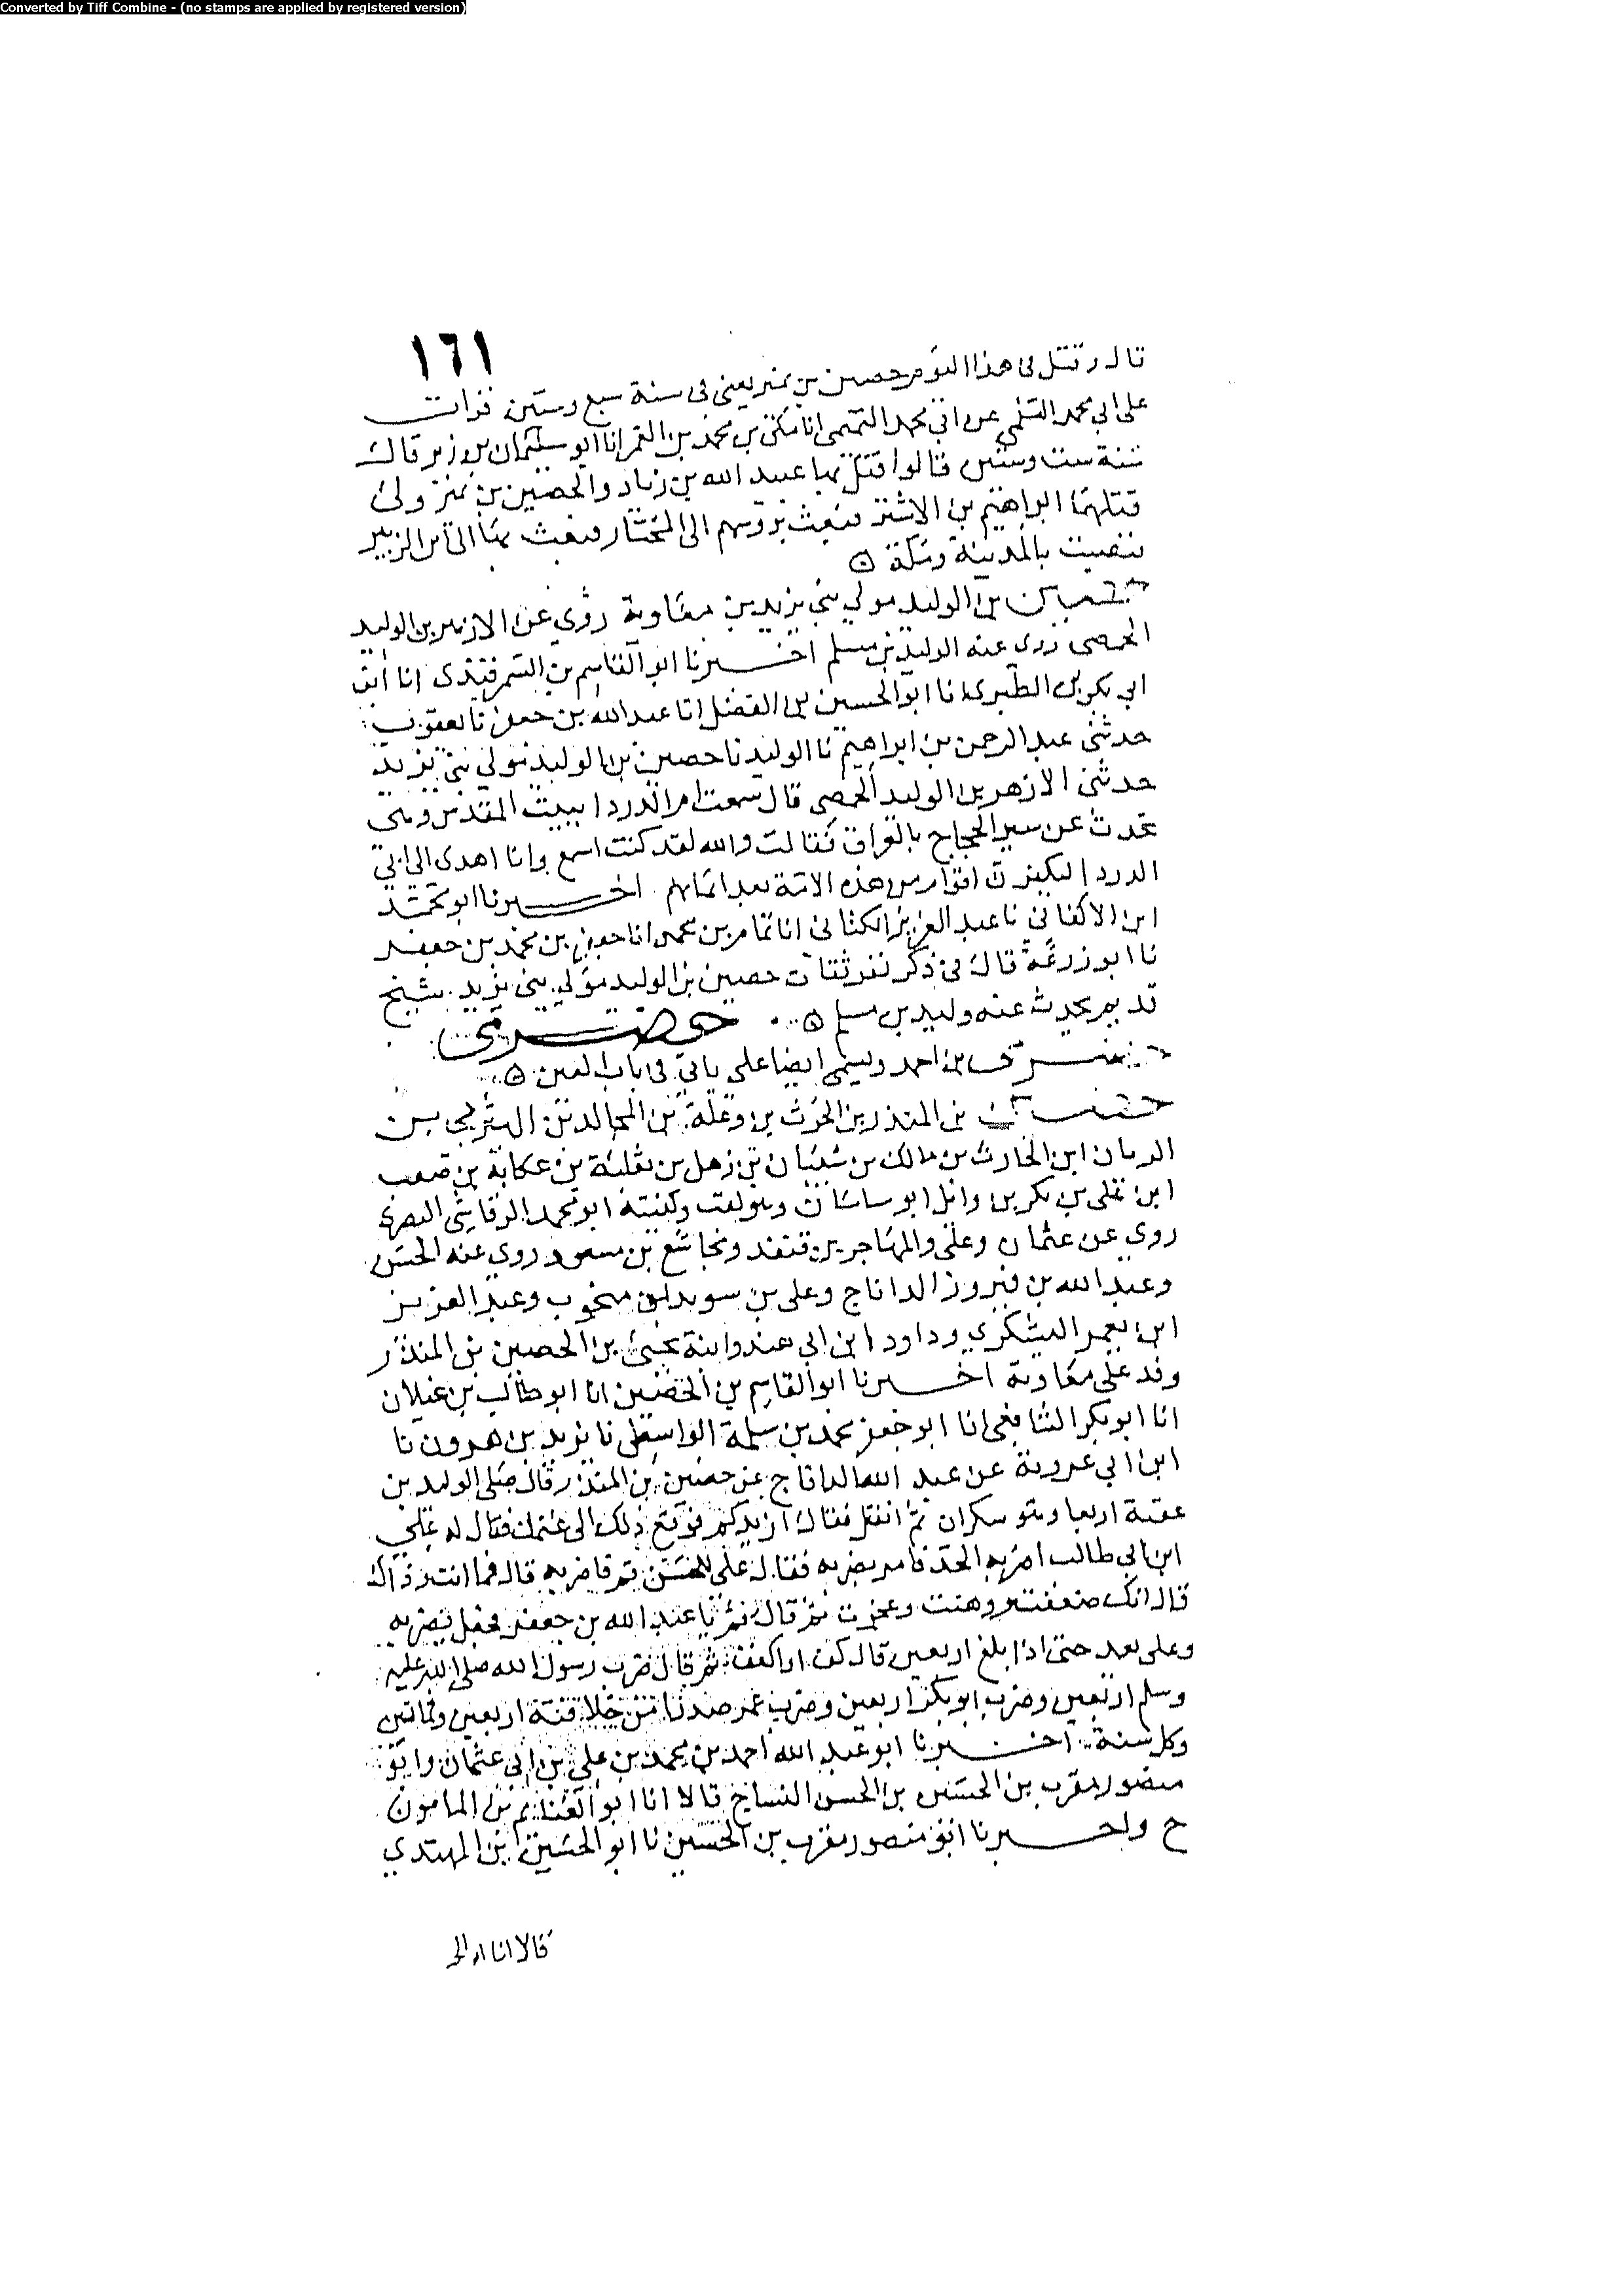 Converted by Tiff Combine - (no stamps are applied by registered version)
١٦١
قال وقتل في هذا اليوم حصين بن نمير يعني في سنة سبع وستين قرات
على ابي محمد السلمي عن ابي محمد التميمي انا مكي بن محمد بن الغمر انا ابو سليمان بن زبر قال
سنة ست وستين قالوا قتل بها عبيد الله بن زياد والحصين بن نمير ولي
قتلهما ابراهيم بن الاشتر فبعث بروسهم الى المختار فبعث بها الى ابن الزبير
فنصبت بالمدينة ومكة
حصين بن الوليد مولى بني يزيد بن معاوية روى عن الازهر بن الوليد
الحمصي روى عنه الوليد بن مسلم اخبرنا ابو القاسم بن السمرقندي انا ابو
ابي بكر بن الطبري انا ابو الحسين بن الفضل انا عبد الله بن جعفر نا يعقوب
حدثني عبد الرحمن بن ابراهيم نا الوليد نا حصين بن الوليد مولى بني يزيد
حدثني الازهر بن الوليد الحمصي قال سمعت ام الدرداء ببيت المقدس وهي
تحدث عن سير الحجاج بالعراق فقالت والله لقد كنت اسمع وانا اهدى الى ابي
الدردا ليكفرن اقوام من هذه الامة بعد ايمانهم اخبرنا ابو محمد
ابن الاكفاني نا عبد العزيز الكتاني انا تمام بن محمد انا جعفر بن محمد بن جعفر
نا ابو زرعة قال في ذكر نفر ثقات حصين بن الوليد مولى بني يزيد شيخ
قديم يحدث عنه وليد بن مسلم حضرمي
حضرمي بن احمد ويسمى ايضا علي ياتي في باب العين
حضين بن المنذر بن الحرث بن وعلة بن المجالد بن اليثربي بن
الريان ابن الحارث بن مالك بن شيبان بن ذهل بن ثعلبة بن عكابة بن صعب
ابن علي بن بكر بن وائل ابو ساسان وهو لقب وكنيته ابو محمد الرقاشي البصري
روى عن عثمان وعلي والمهاجر بن قنفذ ومجاشع بن مسعود روى عنه الحسن
وعبد الله بن فيروز الداناج وعلي بن سويد بن منجوب وعبد العزيز
ابن معمر اليشكري وداود ابن ابي هند وابنه يحيى بن الحصين بن المنذر
وفد على معاوية اخبرنا ابو القاسم بن الحصين انا ابو طالب بن غيلان
انا ابو بكر الشافعي انا ابو جعفر محمد بن سلمة الواسطي نا يزيد بن هرون نا
ابن ابي عروبة عن عبد الله الداناج عن حضين بن المنذر قال صلى الوليد بن
عقبة اربعا وهو سكران ثم انفتل فقال ازيدكم فرفع ذلك الى عثمان فقال له علي
ابن ابي طالب اضربه الحد فامر بضربه فقال علي للحسن قم فاضربه قال فما انت وذاك
قال انك ضعفت ووهنت وعجزت ثم قال قم يا عبد الله بن جعفر فجعل يضربه
وعلي يعد حتى اذا بلغ اربعين قال كف او اكفف ثم قال ضرب رسول الله صلى الله عليه
وسلم اربعين وضرب ابو بكر اربعين وضرب عمر صدرا من خلافته اربعين وثمانين
وكل سنة اخبرنا ابو عبد الله احمد بن محمد بن علي بن ابي عثمان وابو
منصور مقرب بن الحسين بن الحسن النساج قالا انا ابو الغنايم بن المامون
ح واخبرنا ابو منصور مقرب بن الحسين نا ابو الحسين ابن المهتدي
قالا انا ابو الحـ